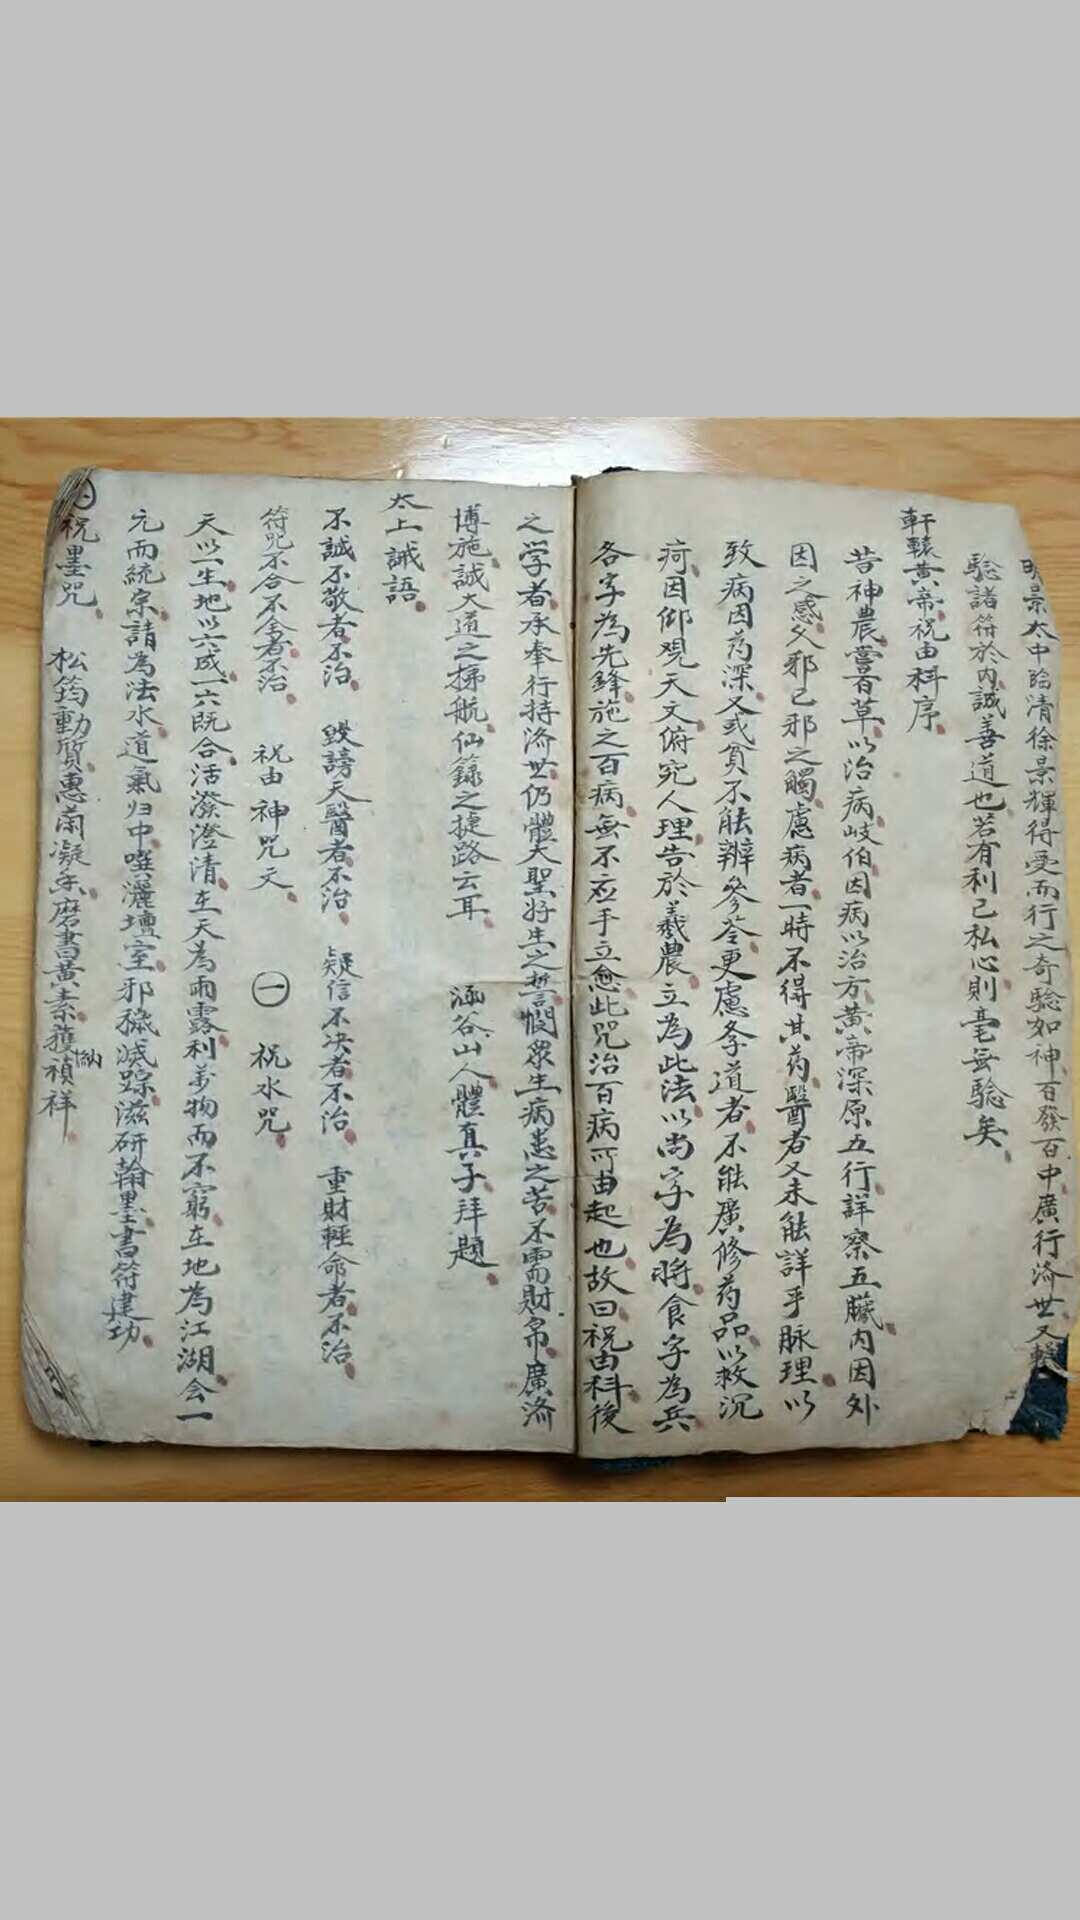 明景太中臨清徐景輝得受而行之奇騐如神百發百中廣行济世又
騐諸符於内誠善道也若有利己私心則毫無騐矣
軒轅黃帝祝由科序
昔神農嘗百草以治病岐伯因病以治方黃帝深原五行詳察五臟内因外
因之感久邪已邪之觸慮病者一時不得其药醫者又未能詳乎脉理以
致病因药深又或貧不能辨參苓更慮李道者不能廣修药品以救沉
疴因仰观天文俯究人理告於羲農立為此法以尚字為將食字為兵
各字為先鋒施之百病無不应手立愈此咒治百病所由起也故曰祝由科後
之学者承奉行持济世仍體大聖好生之誓憫眾生病患之苦不需財帛廣济
博施誠大道之梯航仙籙之捷路云耳 涵谷山人體真子拜題
太上誡語
不誠不敬者不治 毀謗天醫者不治 疑信不决者不治 重財輕命者不治
符咒不合不全者不治 祝由神咒文 ㊀ 祝水咒
天以一生地以六成一六既合活潑澄清在天為雨露利萬物而不窮在地為江湖会一
元而統宗請為法水道氣归中噀灑壇室邪穢滅踪滋研翰墨書符建功
㊀祝墨咒 松筠動質蕙蘭凝香磨書黃素獲納禎祥